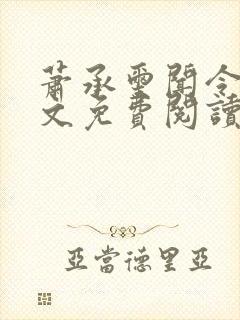 萧承墨闻令
文免費閱讀
亞當德里亞